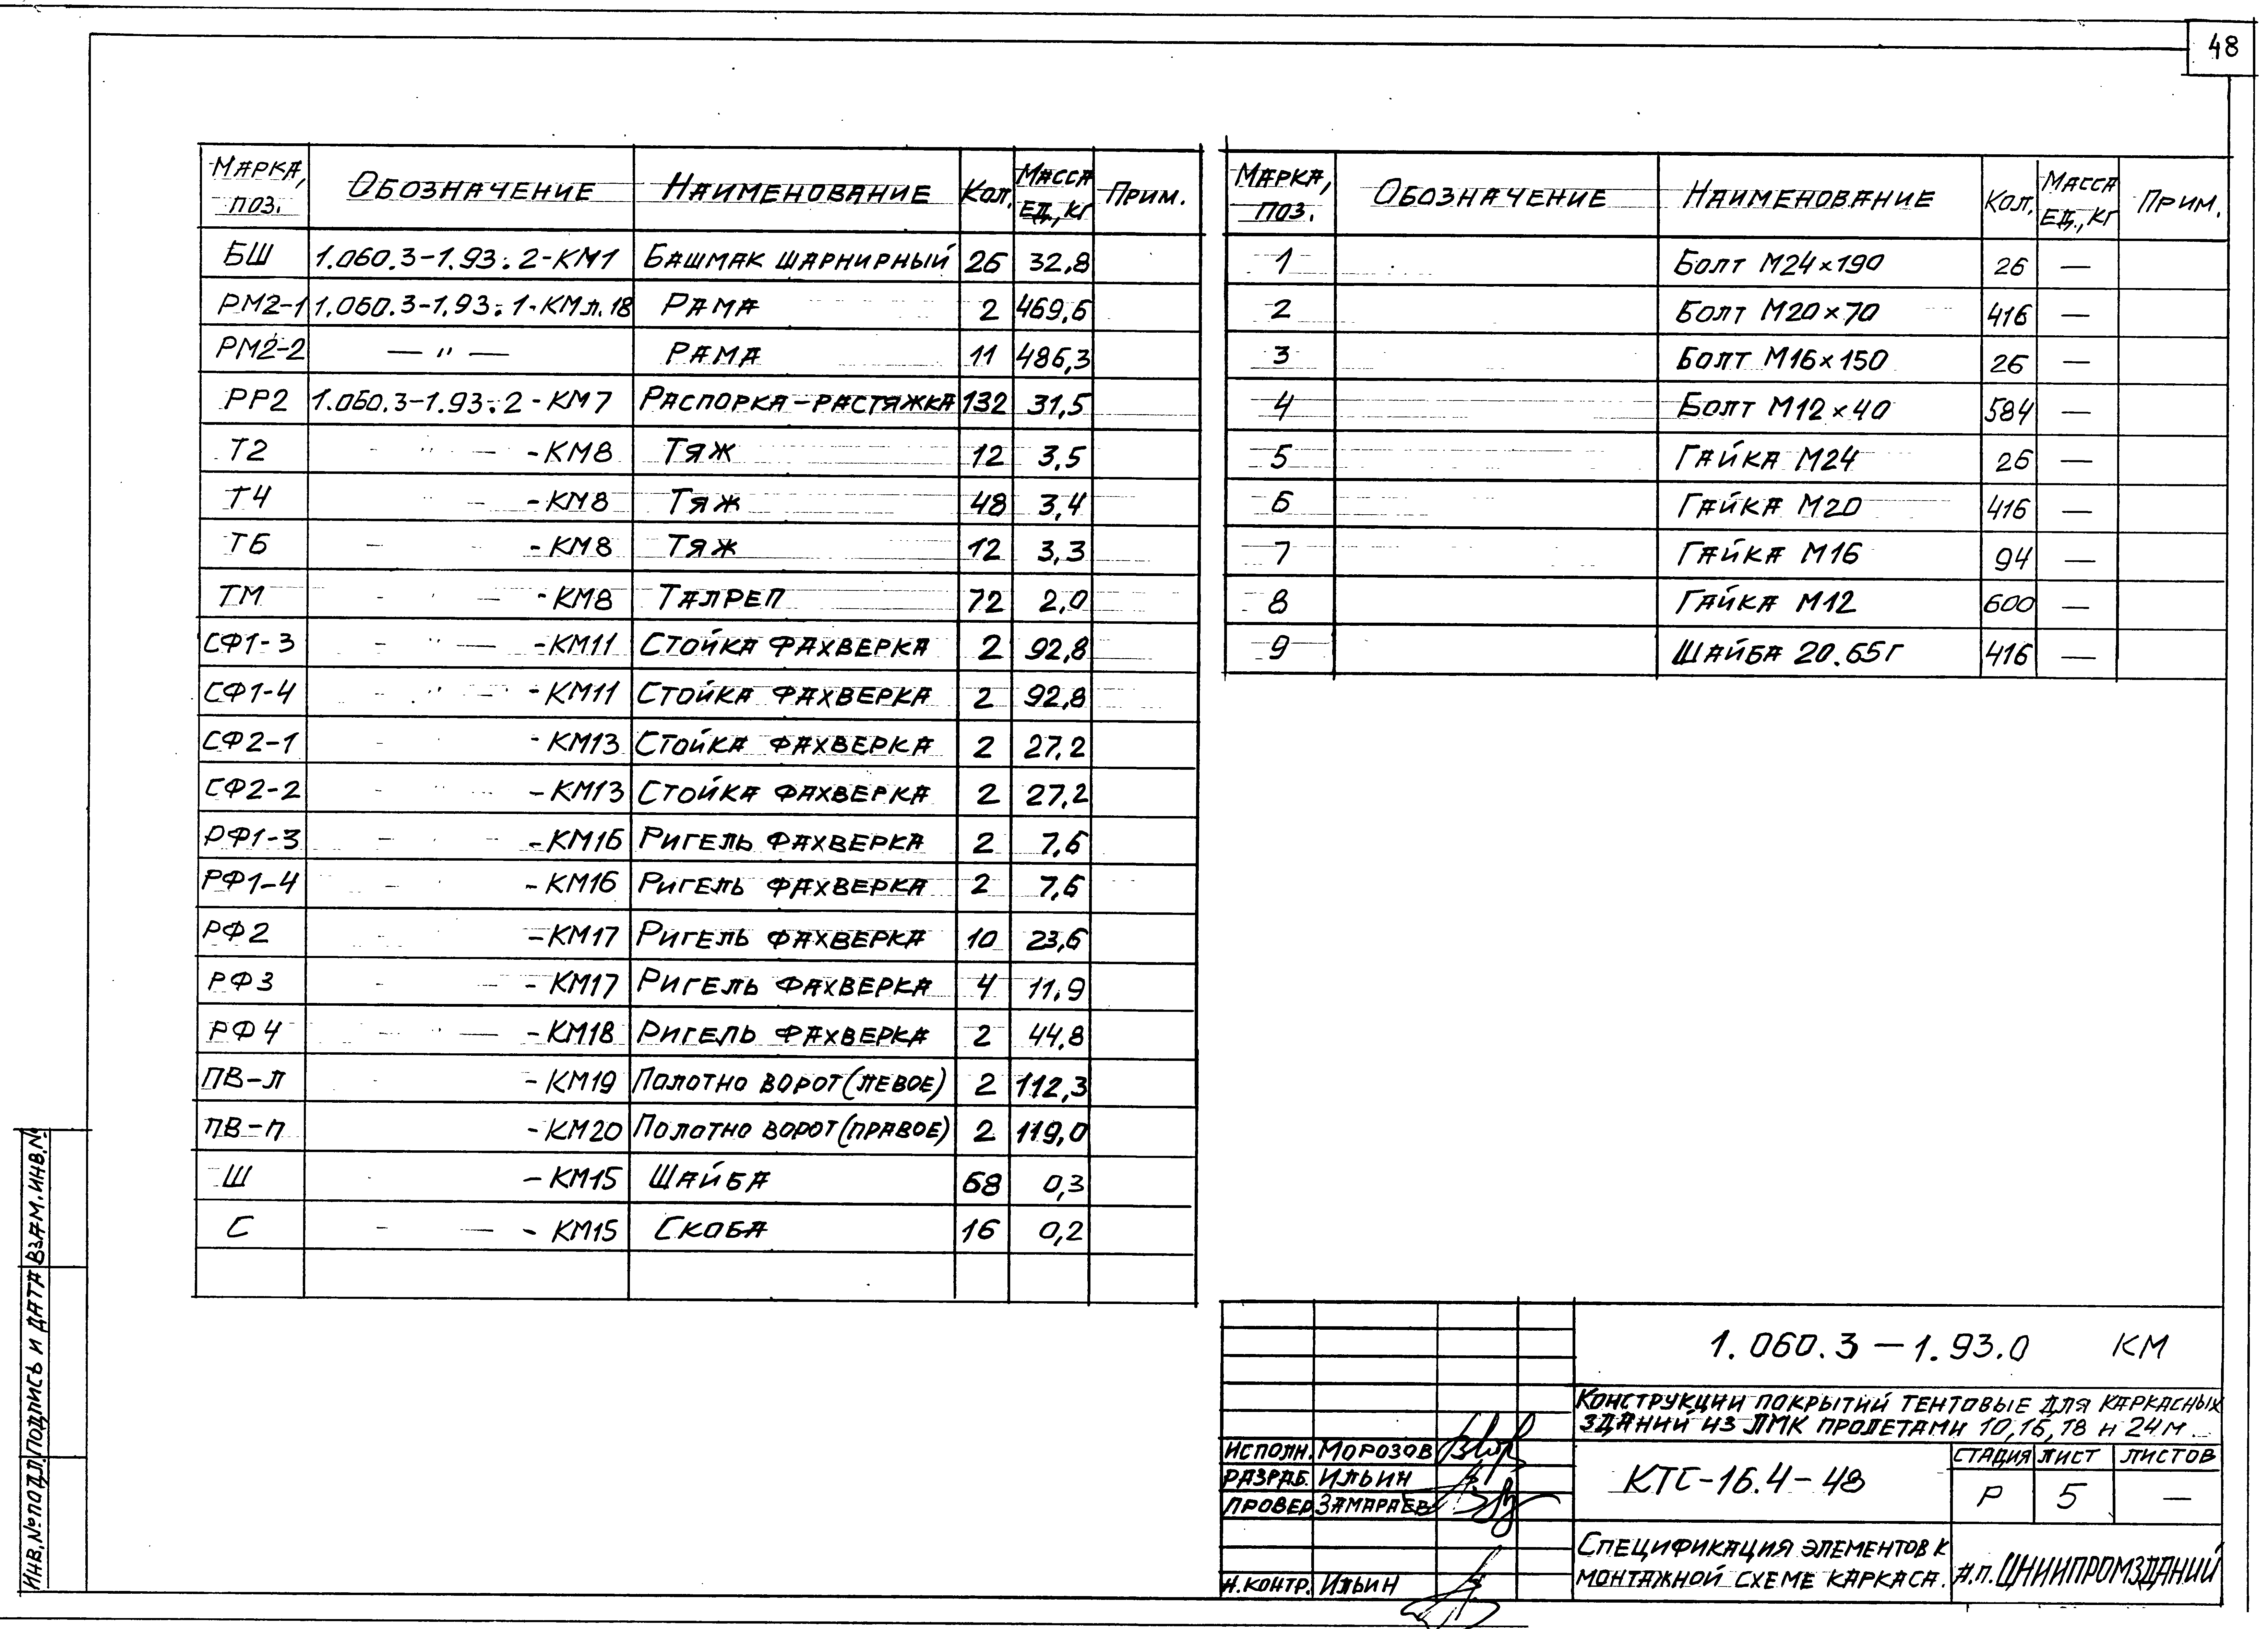 48
МАРКА, ПОЗ. ОБОЗНАЧЕНИЕ НАИМЕНОВАНИЕ КОЛ. МАССА ЕД., КГ ПРИМ.
БШ 1.060.3-1.93.2-КМ1 БАШМАК ШАРНИРНЫЙ 26 32,8
РМ2-1 1.060.3-1.93.1-КМл.18 РАМА 2 469,6
РМ2-2 — " — РАМА 11 486,3
РР2 1.060.3-1.93.2-КМ7 РАСПОРКА-РАСТЯЖКА 132 31,5
Т2 - " — -КМ8 ТЯЖ 12 3,5
Т4 " — -КМ8 ТЯЖ 48 3,4
Т6 - -КМ8 ТЯЖ 12 3,3
ТМ - " — -КМ8 ТАЛРЕП 72 2,0
СФ1-3 - " — -КМ11 СТОЙКА ФАХВЕРКА 2 92,8
СФ1-4 - " — -КМ11 СТОЙКА ФАХВЕРКА 2 92,8
СФ2-1 - -КМ13 СТОЙКА ФАХВЕРКА 2 27,2
СФ2-2 - -КМ13 СТОЙКА ФАХВЕРКА 2 27,2
РФ1-3 - - -КМ16 РИГЕЛЬ ФАХВЕРКА 2 7,6
РФ1-4 - -КМ16 РИГЕЛЬ ФАХВЕРКА 2 7,6
РФ2 -КМ17 РИГЕЛЬ ФАХВЕРКА 10 23,6
РФ3 - — -КМ17 РИГЕЛЬ ФАХВЕРКА 4 11,9
РФ4 - " — -КМ18 РИГЕЛЬ ФАХВЕРКА 2 44,8
ПВ-Л - -КМ19 ПОЛОТНО ВОРОТ (ЛЕВОЕ) 2 112,3
ПВ-П -КМ20 ПОЛОТНО ВОРОТ (ПРАВОЕ) 2 119,0
Ш -КМ15 ШАЙБА 68 0,3
С - — -КМ15 СКОБА 16 0,2
МАРКА, ПОЗ. ОБОЗНАЧЕНИЕ НАИМЕНОВАНИЕ КОЛ. МАССА ЕД., КГ ПРИМ.
1 БОЛТ М24×190 26 —
2 БОЛТ М20×70 416 —
3 БОЛТ М16×150 26 —
4 БОЛТ М12×40 584 —
5 ГАЙКА М24 26 —
6 ГАЙКА М20 416 —
7 ГАЙКА М16 94 —
8 ГАЙКА М12 600 —
9 ШАЙБА 20.65Г 416 —
1.060.3-1.93.0 КМ
КОНСТРУКЦИИ ПОКРЫТИЙ ТЕНТОВЫЕ ДЛЯ КАРКАСНЫХ
ЗДАНИЙ ИЗ ЛМК ПРОЛЕТАМИ 10, 16, 18 и 24 м
ИСПОЛН. МОРОЗОВ
РАЗРАБ. ИЛЬИН
ПРОВЕР. ЗАМАРАЕВ
Н.КОНТР. ИЛЬИН
КТС-16.4-48
СТАДИЯ ЛИСТ ЛИСТОВ
Р 5 —
СПЕЦИФИКАЦИЯ ЭЛЕМЕНТОВ К
МОНТАЖНОЙ СХЕМЕ КАРКАСА.
А.П. ЦНИИПРОМЗДАНИЙ
ИНВ.№ПОДЛ. ПОДПИСЬ И ДАТА ВЗАМ.ИНВ.№